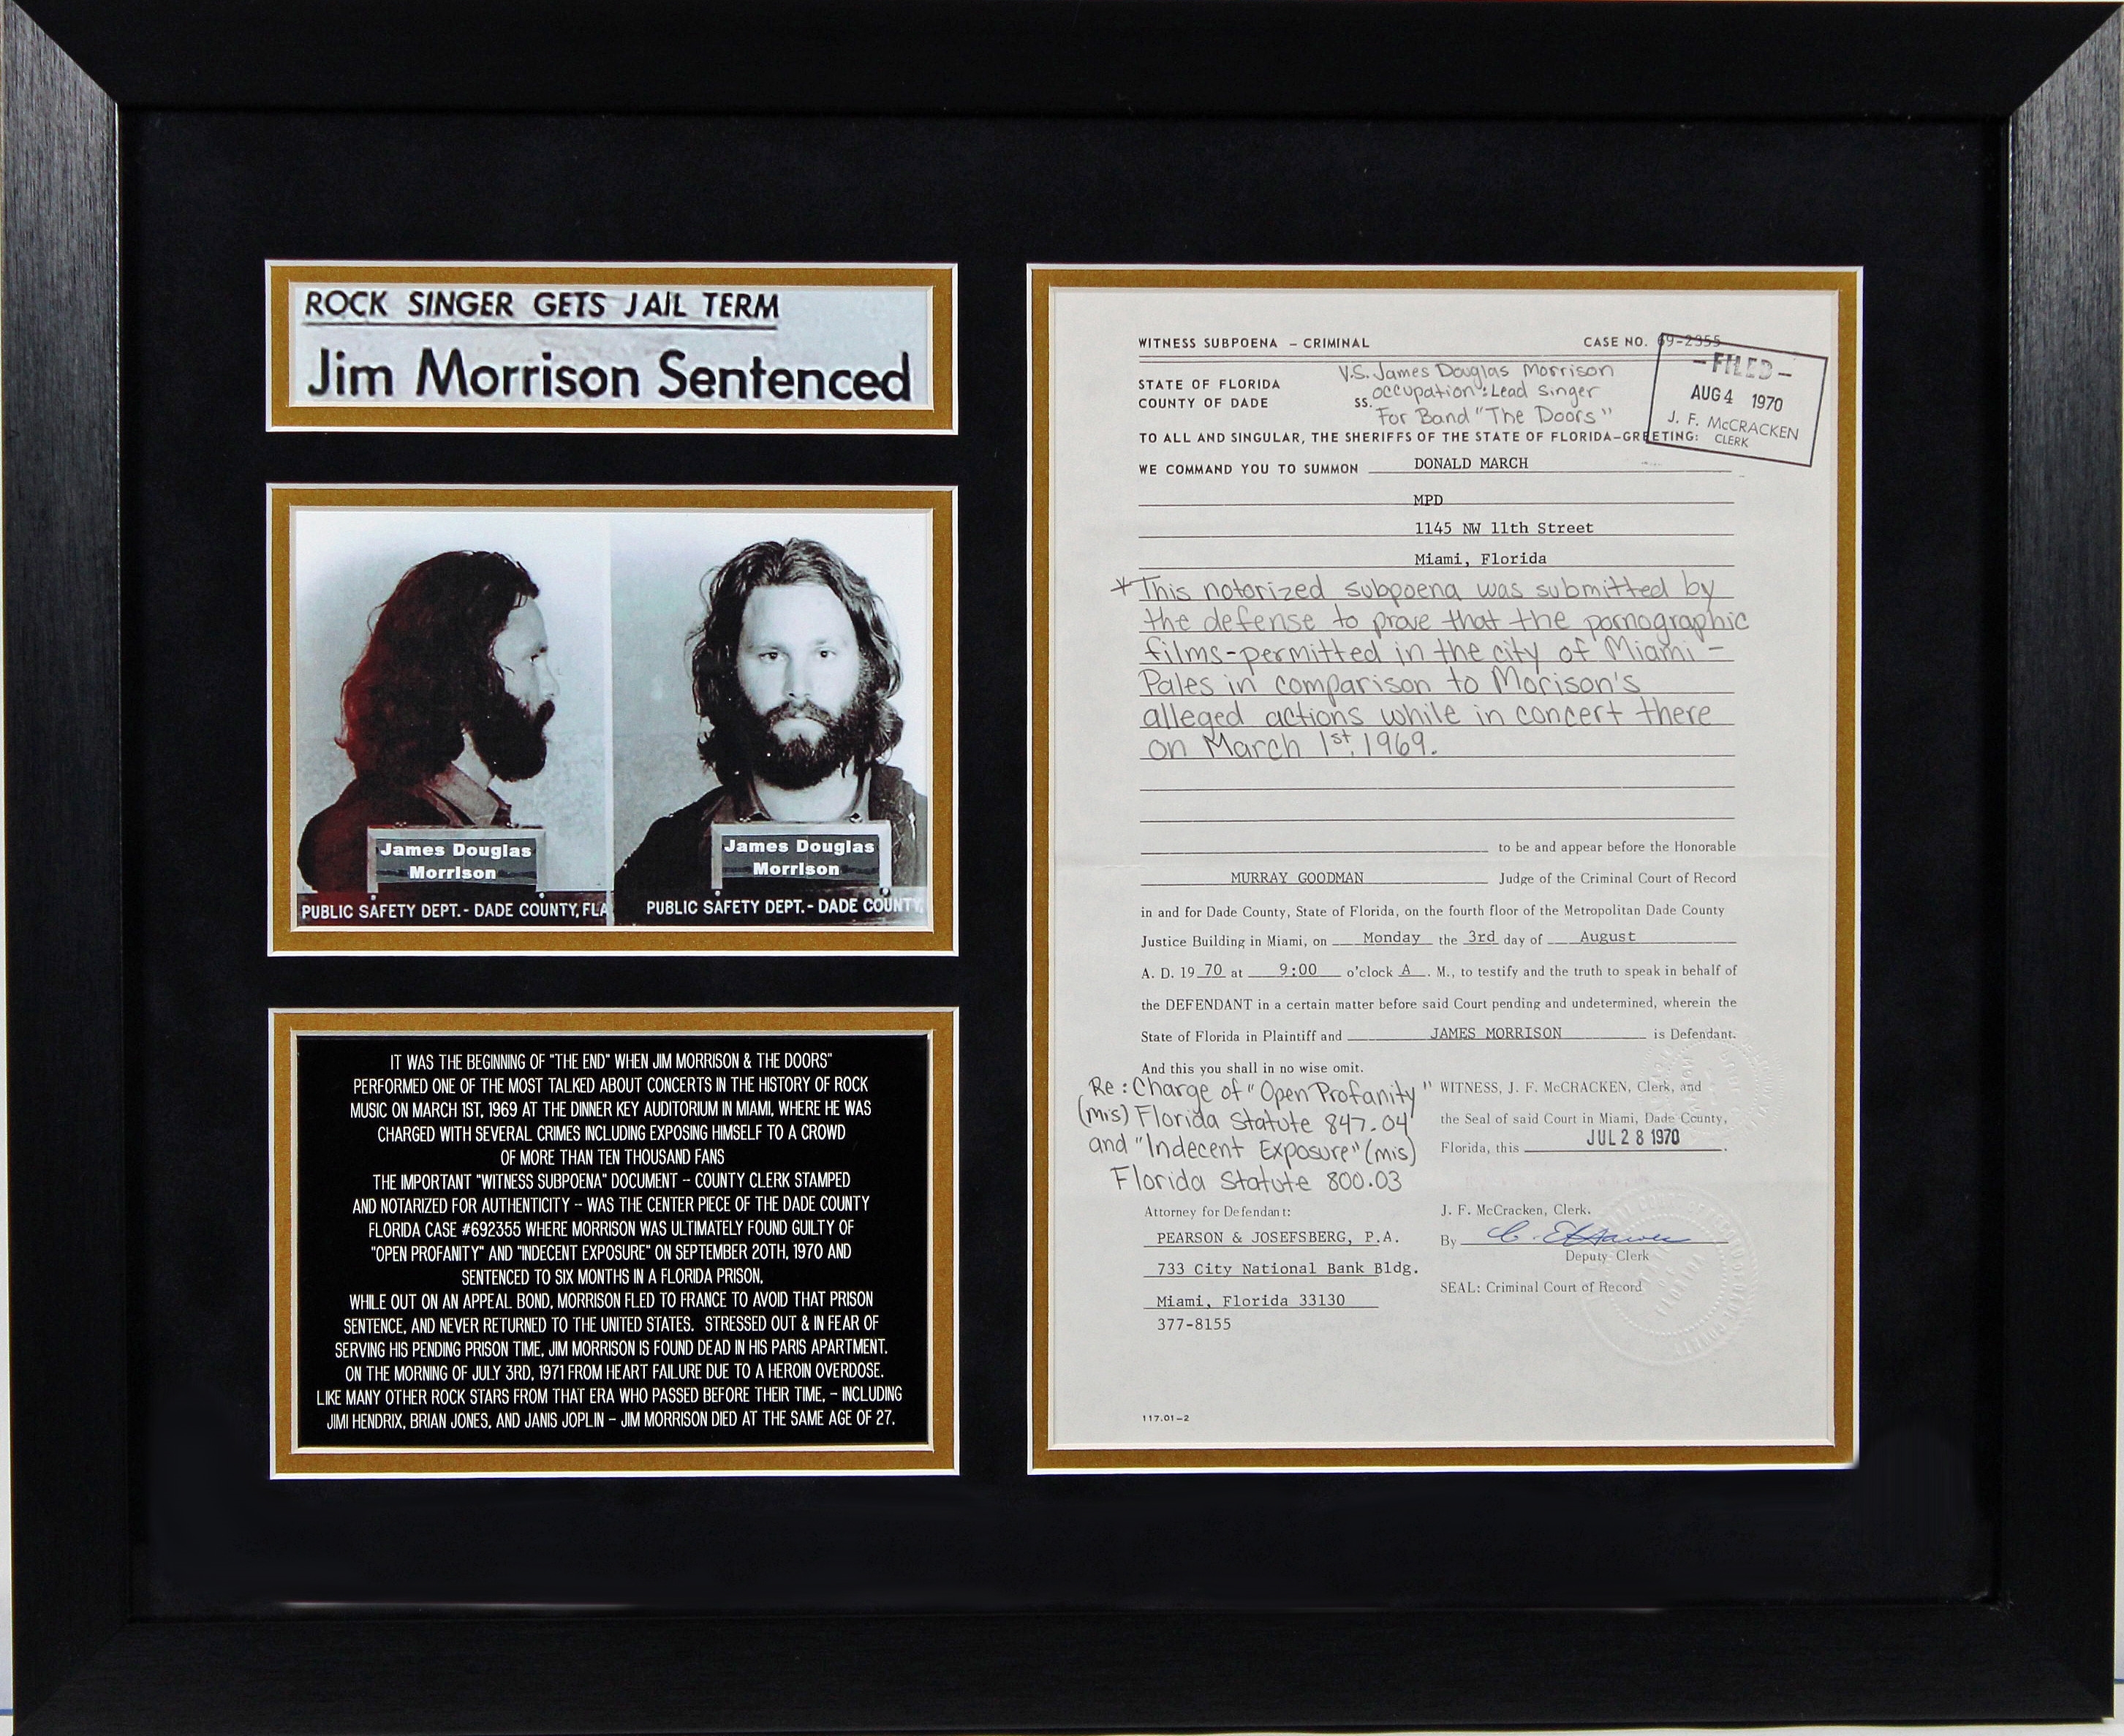 ROCK SINGER GETS JAIL TERM
Jim Morrison Sentenced
James Douglas
Morrison
PUBLIC SAFETY DEPT. - DADE COUNTY, FLA
James Douglas
Morrison
PUBLIC SAFETY DEPT. - DADE COUNTY,
IT WAS THE BEGINNING OF "THE END" WHEN JIM MORRISON & THE DOORS"
PERFORMED ONE OF THE MOST TALKED ABOUT CONCERTS IN THE HISTORY OF ROCK
MUSIC ON MARCH 1ST, 1969 AT THE DINNER KEY AUDITORIUM IN MIAMI, WHERE HE WAS
CHARGED WITH SEVERAL CRIMES INCLUDING EXPOSING HIMSELF TO A CROWD
OF MORE THAN TEN THOUSAND FANS
THE IMPORTANT "WITNESS SUBPOENA" DOCUMENT -- COUNTY CLERK STAMPED
AND NOTARIZED FOR AUTHENTICITY -- WAS THE CENTER PIECE OF THE DADE COUNTY
FLORIDA CASE #692355 WHERE MORRISON WAS ULTIMATELY FOUND GUILTY OF
"OPEN PROFANITY" AND "INDECENT EXPOSURE" ON SEPTEMBER 20TH, 1970 AND
SENTENCED TO SIX MONTHS IN A FLORIDA PRISON.
WHILE OUT ON AN APPEAL BOND, MORRISON FLED TO FRANCE TO AVOID THAT PRISON
SENTENCE, AND NEVER RETURNED TO THE UNITED STATES. STRESSED OUT & IN FEAR OF
SERVING HIS PENDING PRISON TIME, JIM MORRISON IS FOUND DEAD IN HIS PARIS APARTMENT.
ON THE MORNING OF JULY 3RD, 1971 FROM HEART FAILURE DUE TO A HEROIN OVERDOSE.
LIKE MANY OTHER ROCK STARS FROM THAT ERA WHO PASSED BEFORE THEIR TIME, - INCLUDING
JIMI HENDRIX, BRIAN JONES, AND JANIS JOPLIN - JIM MORRISON DIED AT THE SAME AGE OF 27.
WITNESS SUBPOENA - CRIMINAL CASE NO. 69-2355
- FILED -
AUG 4 1970
J. F. McCRACKEN
CLERK
STATE OF FLORIDA
COUNTY OF DADE
SS.
V.S. James Douglas Morrison
occupation: Lead Singer
For Band "The Doors"
TO ALL AND SINGULAR, THE SHERIFFS OF THE STATE OF FLORIDA-GREETING:
WE COMMAND YOU TO SUMMON DONALD MARCH
MPD
1145 NW 11th Street
Miami, Florida
*This notorized subpoena was submitted by
the defense to prove that the pornographic
films-permitted in the city of Miami-
Pales in comparison to Morison's
alleged actions while in concert there
on March 1st, 1969.
to be and appear before the Honorable
MURRAY GOODMAN Judge of the Criminal Court of Record
in and for Dade County, State of Florida, on the fourth floor of the Metropolitan Dade County
Justice Building in Miami, on Monday the 3rd day of August
A. D. 19 70 at 9:00 o'clock A. M., to testify and the truth to speak in behalf of
the DEFENDANT in a certain matter before said Court pending and undetermined, wherein the
State of Florida in Plaintiff and JAMES MORRISON is Defendant.
And this you shall in no wise omit.
Re: Charge of "Open Profanity"
(mis) Florida Statute 847.04
and "Indecent Exposure" (mis)
Florida Statute 800.03
WITNESS, J. F. McCRACKEN, Clerk, and
the Seal of said Court in Miami, Dade County,
Florida, this JUL 28 1970.
Attorney for Defendant:
PEARSON & JOSEFSBERG, P.A.
733 City National Bank Bldg.
Miami, Florida 33130
377-8155
J. F. McCracken, Clerk.
By
Deputy Clerk
SEAL: Criminal Court of Record
117.01-2